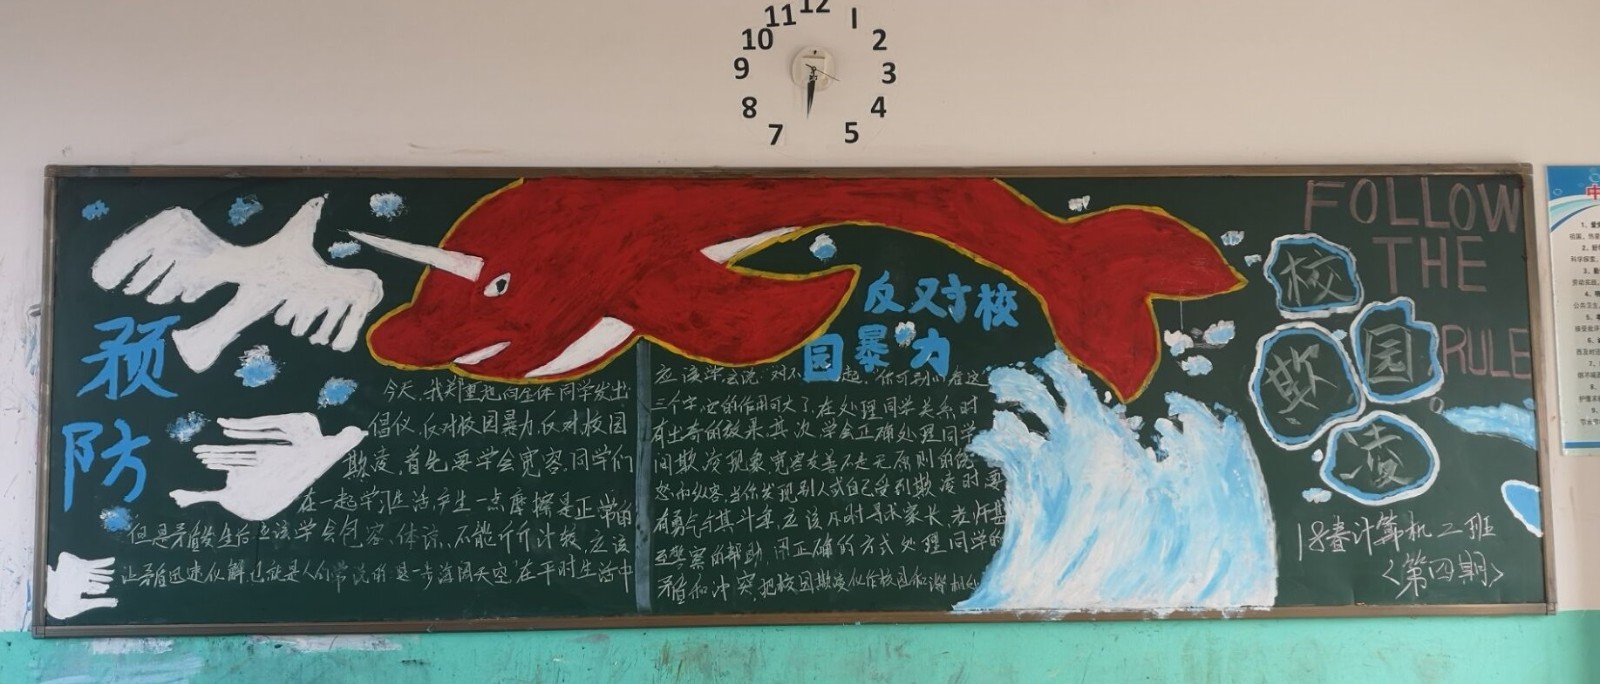 12
11
1
10
2
9
3
8
4
7
5
预
防
反对校
园暴力
今天,我郑重地向全体同学发出
倡仪,反对校园暴力,反对校园
欺凌,首先要学会宽容,同学们
在一起学习生活,产生一点摩擦是正常的
但是矛盾发生后应该学会包容、体谅、不能斤斤计较,应该
让矛盾迅速化解,也就是人们常说的退一步海阔天空,在平时生活中
应该学会说"对不起,你可别小看这
三个字,它的作用可大了,在处理同学关系,时
有出奇的效果,其次,学会正确处理同学
间欺凌现象,宽容友善不是无原则的
怒和纵容,当你发现别人或自己受到欺凌时,要
有勇气与其斗争,应该及时寻求家长,老师甚
至警察的帮助,用正确的方式处理同学的
矛盾和冲突,把校园欺凌化作校园和谐
FOLLOW
THE
RULE
校
园
欺
凌
18春计算机二班
<第四期>